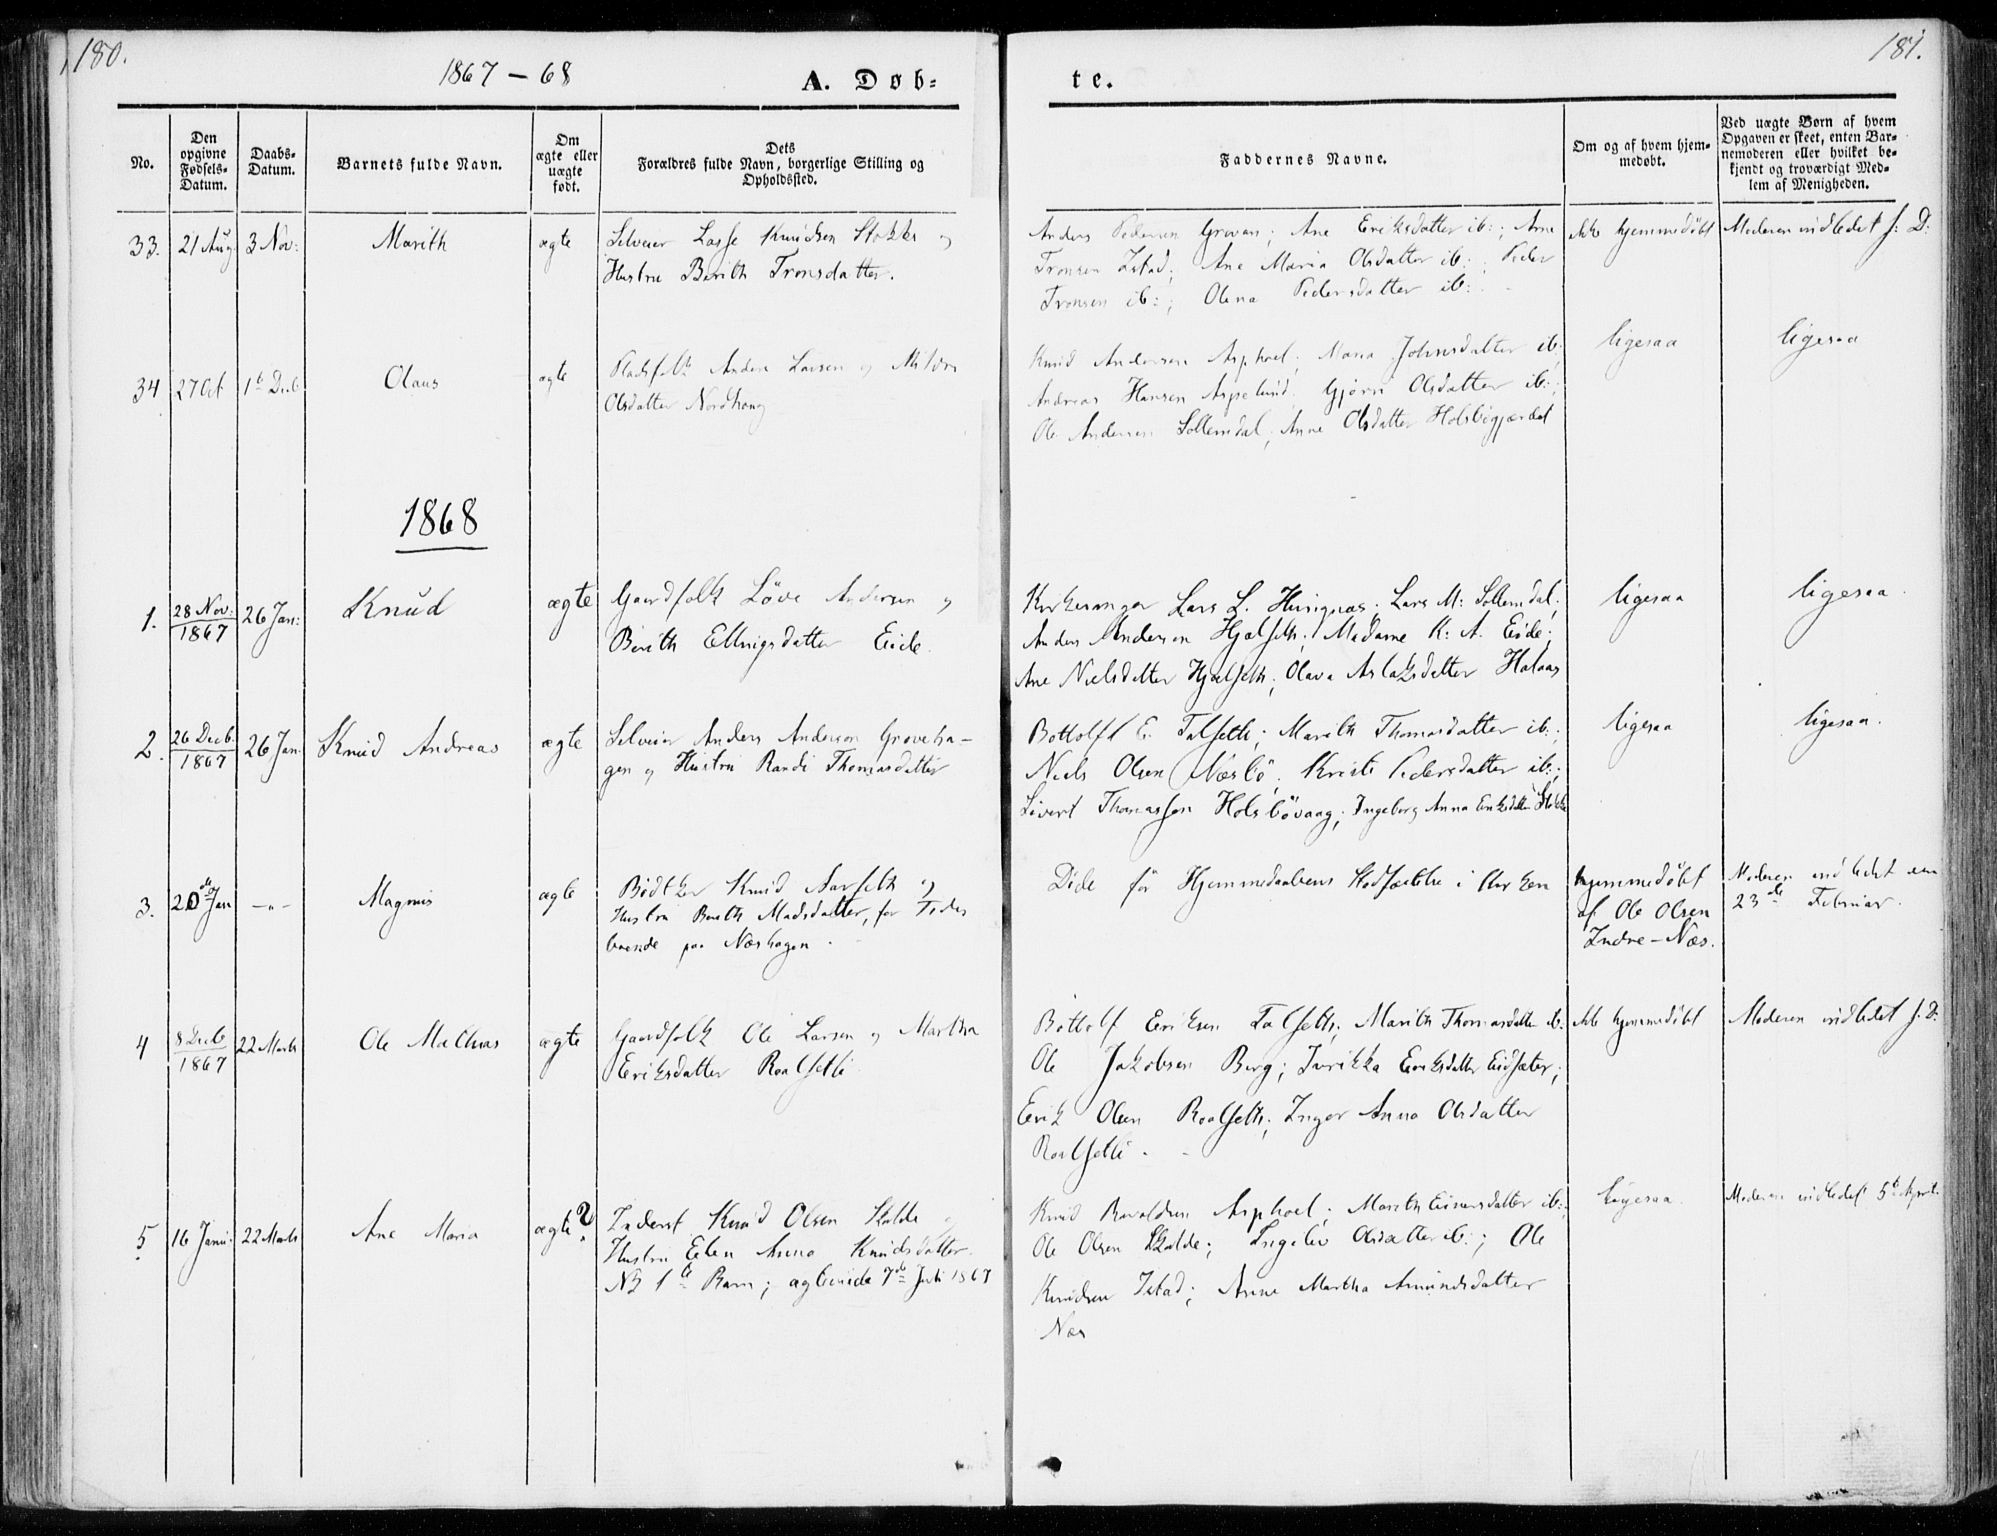 180.
1867 – 68
A. Døb-
te.
181.
No.
Den opgivne Fødsels-Datum.
Daabs-Datum.
Barnets fulde Navn.
Om ægte eller uægte født.
Dets Forældres fulde Navn, borgerlige Stilling og Opholdssted.
Faddernes Navne.
Om og af hvem hjem-
medøbt.
Ved uægte Børn af hvem
Opgaven er skeet, enten Bar-
nemoderen eller hvilket be-
kjendt og troværdigt Med-
lem af Menigheden.
33. 21 Aug 3 Nov: Marith ægte Selveier Lasse Knudsen Stokke og
Hustru Berith Tronsdatter.
Anders Pedersen Grovan; Ane Eriksdatter ib:; Arne
Tronsen Istad; Ane Maria Olsdatter ib:; Peder
Tronsen ib:; Olena Pedersdatter ib:
ikke hjemmedöbt
Moderen indledet s: D:
34 27 Oct 1te Decb Olaus ægte Pladsfolk Anders Larsen og
Olsdatter Nordhaug
Knud Andersen Asphoel; Maria Johnsdatter ib;
Andreas Hansen Aspelund; Gjørri Olsdatter ib:;
Ole Andersen Sollemdal; Anne Olsdatter Holsbøgjærdet
ligesaa
ligesaa
1868
1. 28 Nov: 1867 26 Jan: Knud ægte Gaardfolk Löve Andersen og
Berith Ellingsdatter Eide.
Kirkesanger Lars L. Husignæs; Lars M: Sollemdal;
Anders Andersen Hjelseth; Madame K: A. Eide;
Ane Nielsdatter Hjelseth; Olava Aslaksdatter Halaas
ligesaa
ligesaa.
2. 26 Decb. 1867 26 Jan. Knud Andreas ægte Selveier Anders Anderson Groveha-
gen og Hustru Randi Thomasdatter
Bottolf E. Talseth; Marith Thomasdatter ib:;
Niels Olsen Næsbö; Kristi Pedersdatter ib:;
Sivert Thomassen Holsbövaag; Ingeborg Anna Eriksdatter Stokke
ligesaa
ligesaa.
3. 20de Jan –"– Magnus ægte Bødtker Knud Aarseth og
Hustru Berith Madsdatter, for Tiden
boende paa Næshagen.
Døde för Hjemmedaabens Stadfæstelse i Kirken
hjemmedöbt
af Ole Olsen
Indre-Næs.
Moderen indledet den
23de Februar.
4 8 Decb 1867 22 Marts Ole Mathias ægte Gaardfolk Ole Larsen og Martha
Eriksdatter Roalsetli
Bottolf Eriksen Talseth; Marith Thomasdatter ib:
Ole Jakobsen Berg; Eriksdatter Eidsæter;
Erik Olsen Roalseth; Inger Anna Olsdatter
Roalsetli.
ikke hjemmedöbt
Moderen indledet s. D:
5 16 Janu: 22 Marts Ane Maria ægte? Inderst Knud Olsen Skalde og
Hustru Elen Anna Knudsdatter.
NB 1te Barn; ægteviede 7de Juli 1867
Knud Asphoel; Marith Einarsdatter ib:;
Ole Olsen Skalde; Ingeliv Olsdatter ib:; Ole
Knudsen Istad; Anne Martha Amundsdatter
Næs
ligesaa.
Moderen indledet 5te April.